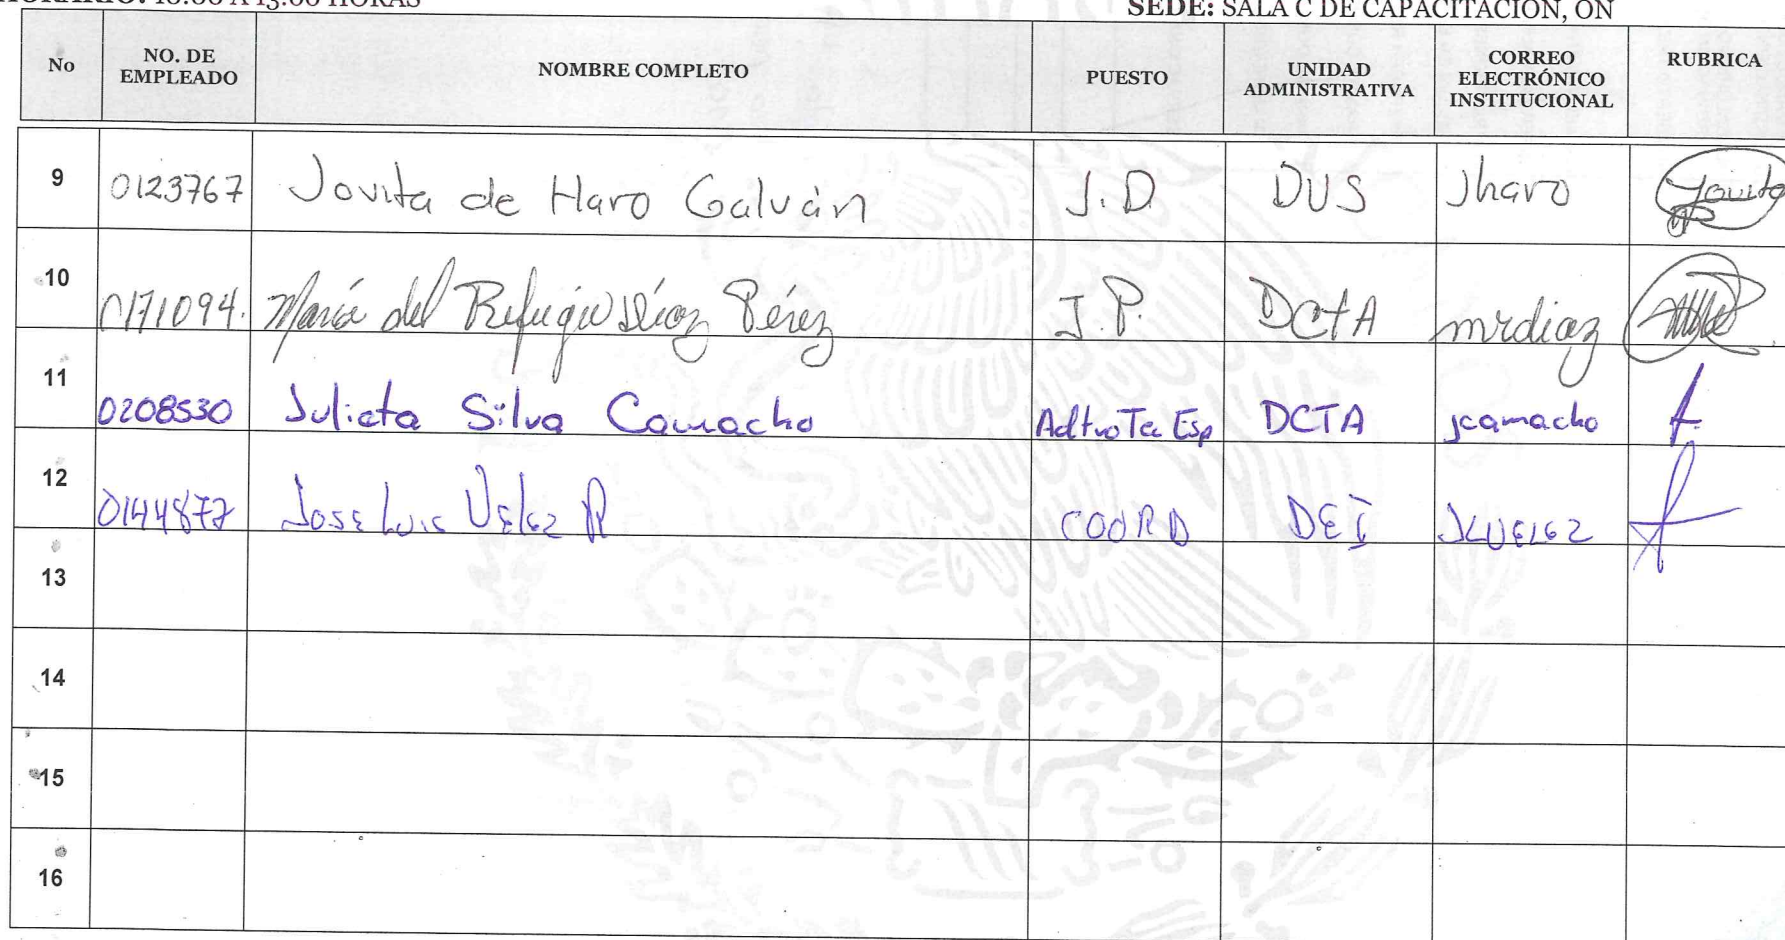 HORARIO: 10:00 A 13:00 HORAS
SEDE: SALA C DE CAPACITACIÓN, ON
No NO. DE EMPLEADO NOMBRE COMPLETO PUESTO UNIDAD ADMINISTRATIVA CORREO ELECTRÓNICO INSTITUCIONAL RUBRICA
9 0123767 Jovita de Haro Galván J.D. DUS Jharo Jovita
10 0171094. María del Refugio Díaz Pérez J.P. DCtA mrdiaz
11 0208530 Julieta Silva Camacho AdtvoTec Esp DCTA jcamacho
12 0144877 Jose Luis Velez R COORD DEI JLVELEZ
13
14
15
16